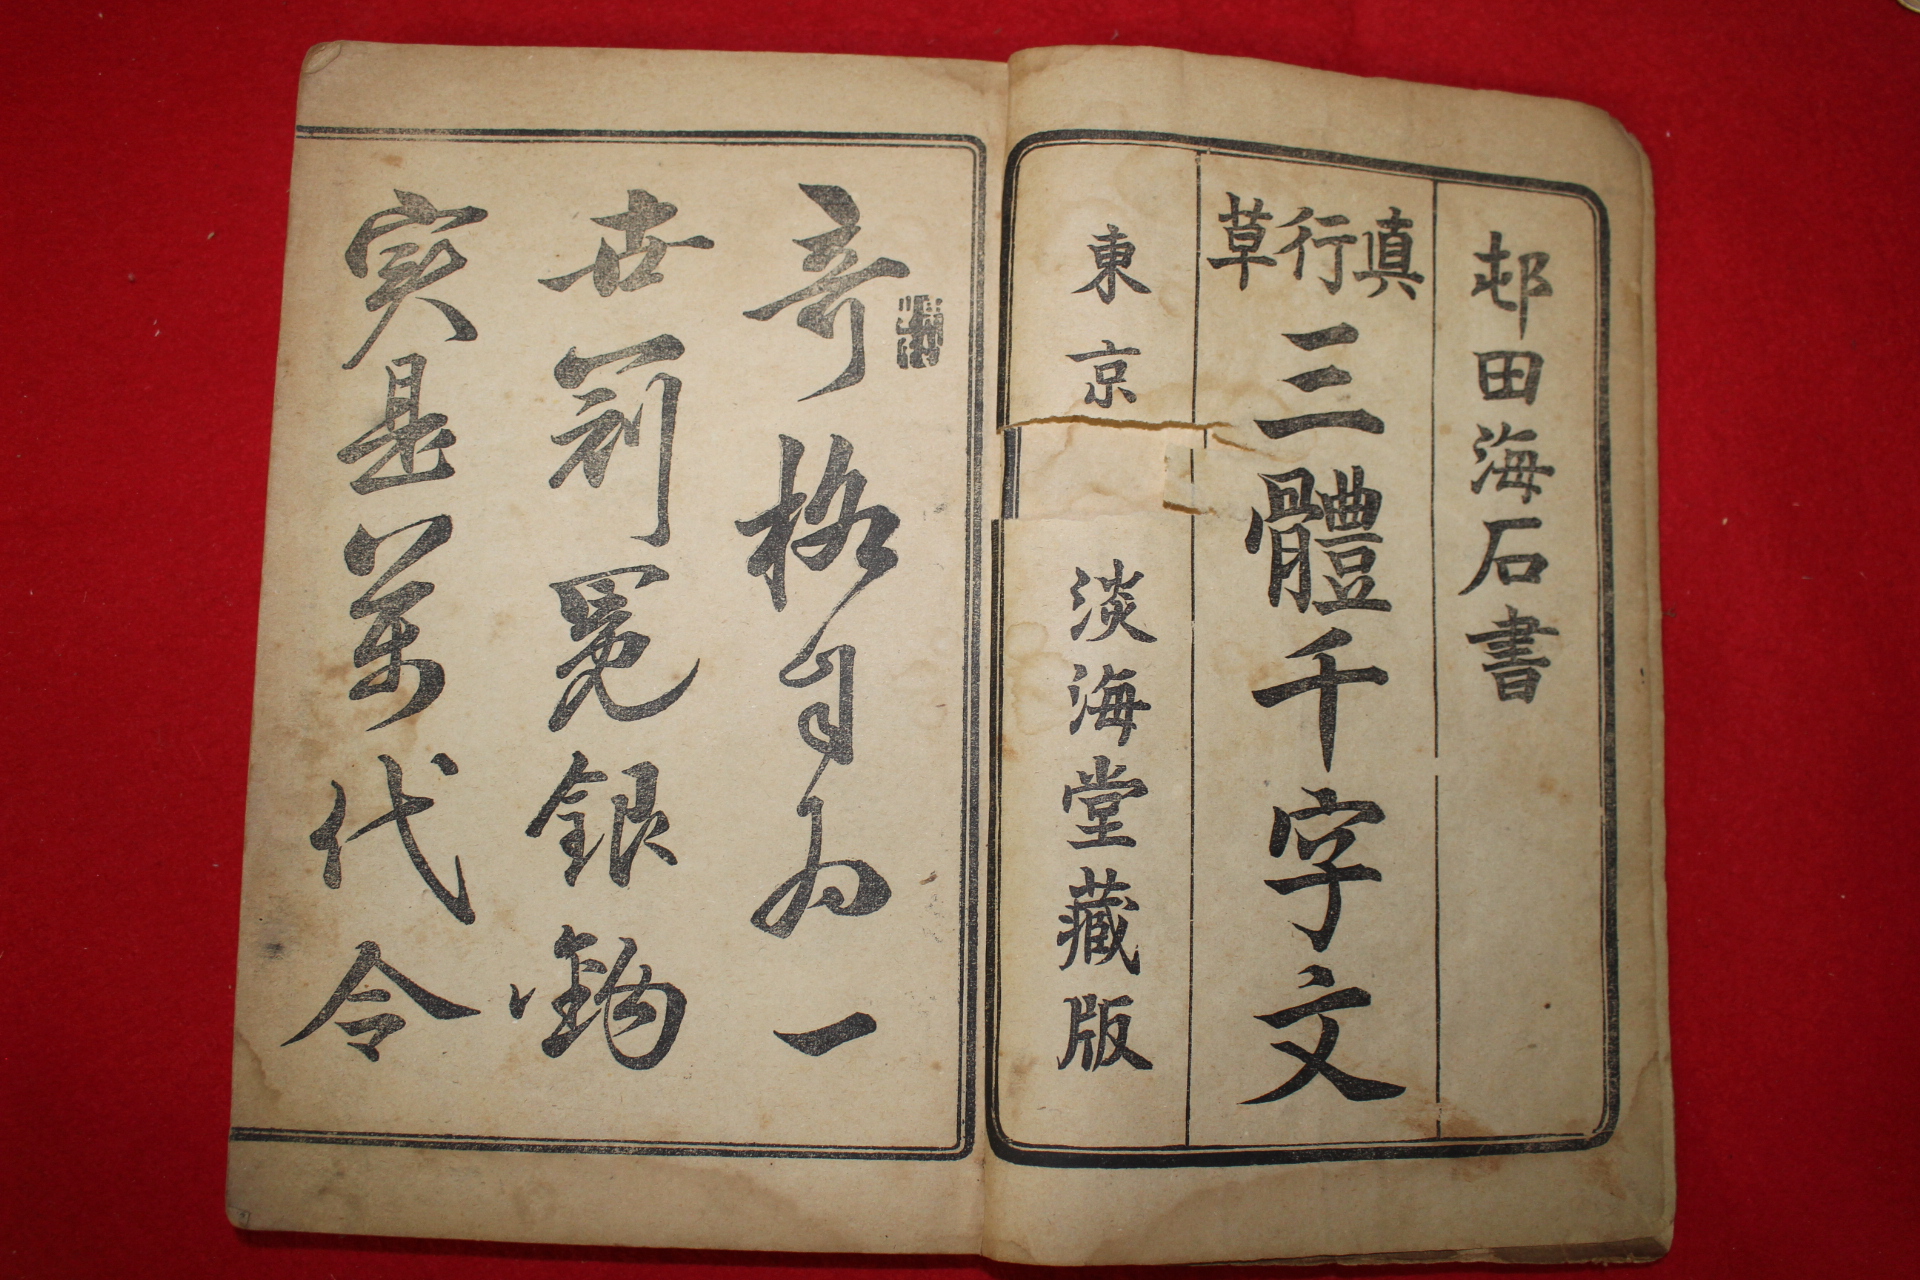 邨田海石書
真行草
三體千字文
東京 淡海堂藏版
奇格自為一
世翦冕銀鉤
実是萬代令